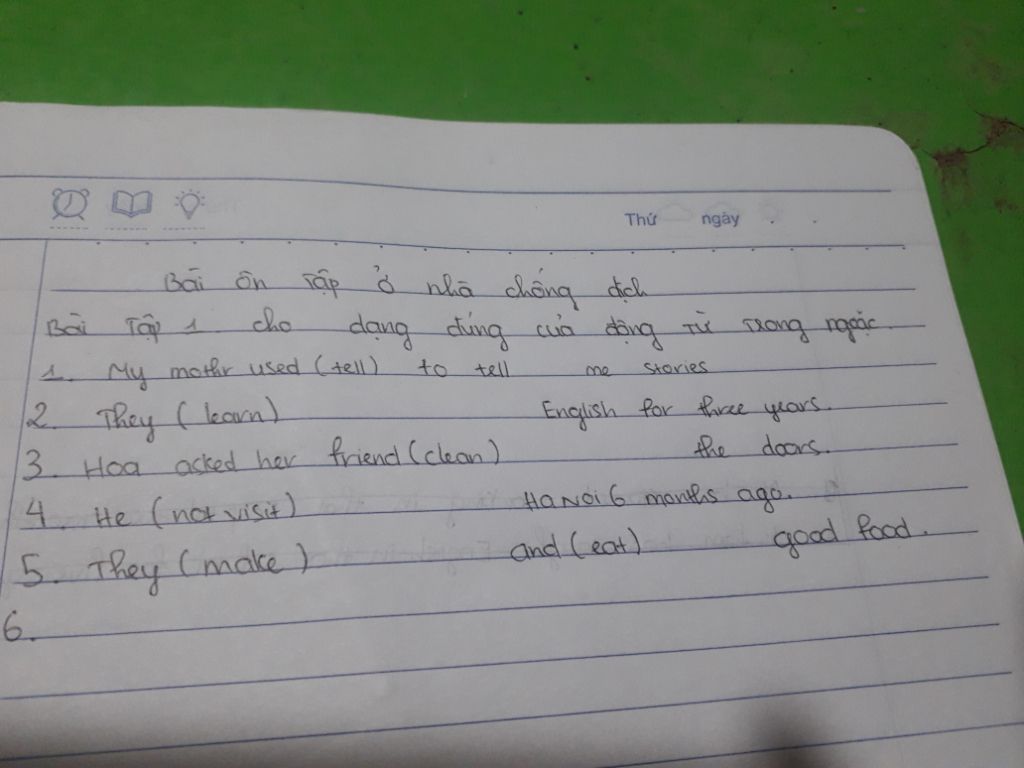 Thứ ngày
Bài ôn tập ở nhà chống dịch
Bài tập 1 cho dạng đúng của động từ trong ngoặc
1. My mother used (tell) to tell me stories
2. They (learn) English for three years.
3. Hoa asked her friend (clean) the doors.
4. He (not visit) HANỘI 6 months ago.
5. They (make) and (eat) good food.
6.